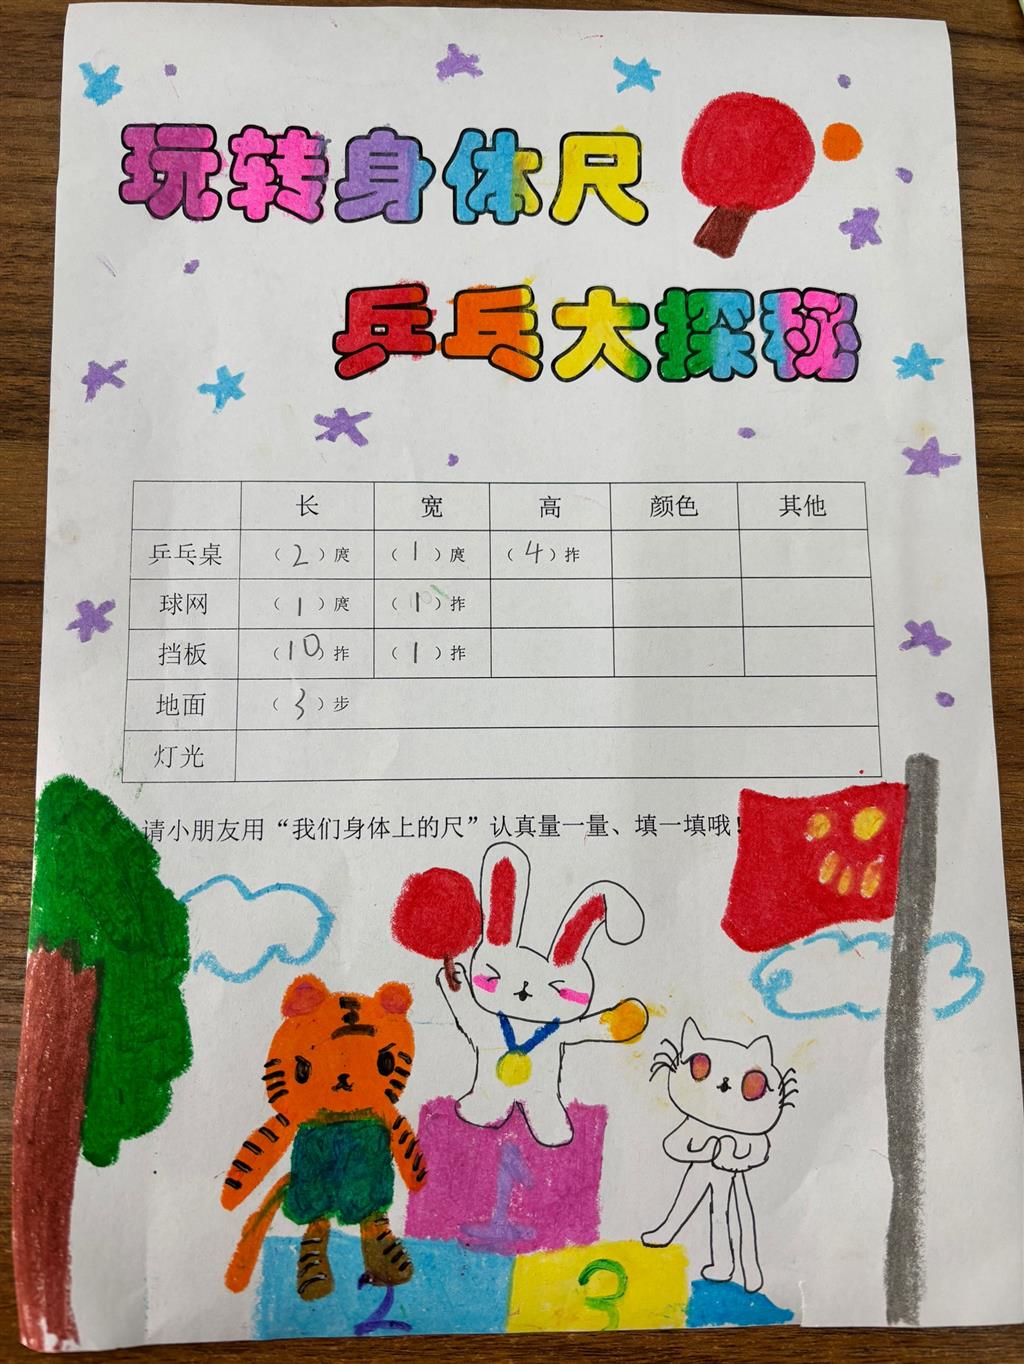 玩转身体尺
乒乓大探秘
长 宽 高 颜色 其他
乒乓桌 （2）庹 （1）庹 （4）拃
球网 （1）庹 （1）拃
挡板 （10）拃 （1）拃
地面 （3）步
灯光
请小朋友用“我们身体上的尺”认真量一量、填一填哦！
王
1
2 3